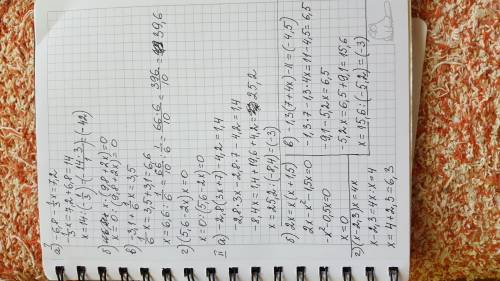 а) -6,8 - 1/3 x = 7,2
1/3 x = 7,2 + 6,8 = 14
x = 14 : (-1/3) = (-14·3/1) = (-42)
б) x · (9,8 + 2x) = 0
x = 0 : (9,8 + 2x) = 0
в) -3,1 + x/6 = 3,5
x/6 = 3,5 + 3,1 = 6,6
x = 6,6 · 6/1 = 66/10 · 6/1 = 66·6/10 = 396/10 = 39,6
г) (5,6 - 2x) x = 0
x = 0 : (5,6 - 2x) = 0
II а) -2,8 (3x + 7) - 4,2 = 1,4
-2,8 · 3x - 2,8 · 7 - 4,2 = 1,4
-8,4x = 1,4 + 19,6 + 4,2 = 25,2
x = 25,2 : (-8,4) = (-3)
б) 2x = x (x + 1,5)
2x - x² - 1,5x = 0
-x² - 0,5x = 0
x = 0
в) -1,3 (7 + 4x) - 11 = (-4,5)
-1,3 · 7 - 1,3 · 4x = 11 - 4,5 = 6,5
-9,1 - 5,2x = 6,5
-5,2x = 6,5 + 9,1 = 15,6
x = 15,6 : (-5,2) = (-3)
г) (x - 2,3) x = 4x
x - 2,3 = 4x : x = 4
x = 4 + 2,3 = 6,3